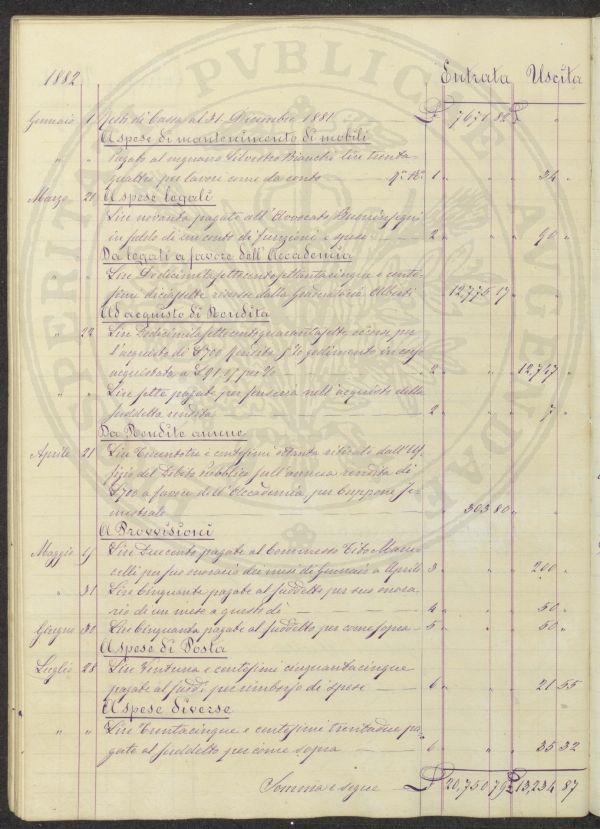 PERITA PVBLICAE AVGENDAE
1882 Entrata Uscita
Gennaio 1 Resto di Cassa al 31 Dicembre 1881 £ 7671 82 £ "
A spese di mantenimento di mobili
" " Pagato al Silvestro Bianchi lire trenta
quattro per lavori come da conto — 1 " " 34 "
Marzo 21 A spese legali
Lire novanta pagate all'Avvocato
in saldo di un conto di funzioni e spese — 2 " " 90 "
Da legati a favore dell'Accademia
" " Lire Dodicimilasettecentosettantacinque e cente-
simi diciassette riscosse dalla Alberti 12,775 17 " "
Ad acquisto di Rendita
" 22 Lire Dodicimilasettecentoquarantasette occorse per
l'acquisto di £700 Rendita 5% godimento in corso
acquistata a £91 per % — 2 " " 12,747 "
" " Lire sette pagate per senseria nell'acquisto della
suddetta rendita — 2 " " 7 "
Da Rendite annue
Aprile 21 Lire Trecentotre e centesimi ottanta ritirate dall'Uf-
fizio del Debito Pubblico sull'annua rendita di
£700 a favore dell'Accademia per Cuppone Se-
mestrale " 303 80 " "
A Provvisioni
Maggio 15 Lire Duecento pagate al Commesso Tito
per suo onorario dei mesi di Gennaio a Aprile 3 " " 200 "
" 31 Lire Cinquanta pagate al suddetto per suo onora-
rio di un mese a questo dì — 4 " " 50 "
Giugno 30 Lire Cinquanta pagate al suddetto per come sopra — 5 " " 50 "
A spese di Posta
Luglio 28 Lire Ventuna e centesimi cinquantacinque
pagate al sudd. per rimborso di spese — 6 " " 21 55
A spese diverse
" " Lire Trentacinque e centesimi trentadue pa-
gate al suddetto per come sopra — 6 " " 35 32
Somma e segue — £ 20,750 79 £ 13,234 87